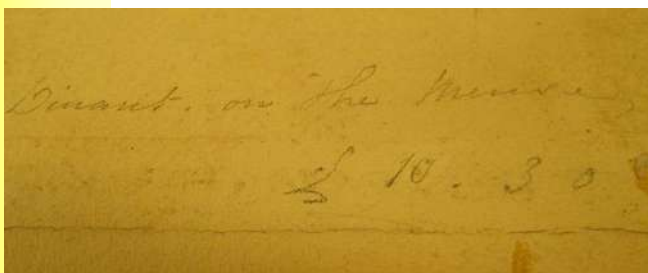 Dinant. on the Meuse,
£ 10. 3 0